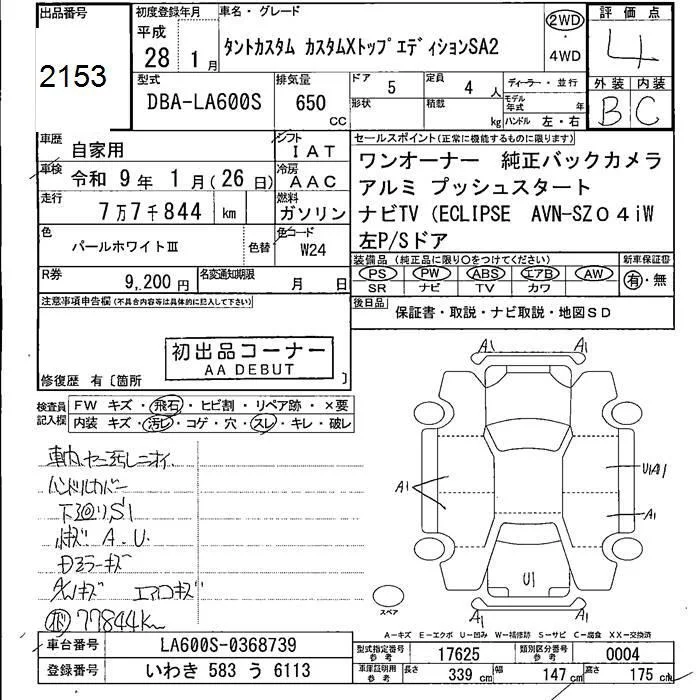 出品番号
2153
初度登録年月
平成
28年 1月
車名・グレード
タントカスタム カスタムXトップエディションSA2
2WD
・
4WD
評価点
4
外装 内装
B C
型式
DBA-LA600S
排気量
650
CC
ドア
5
定員
4 人
形状
積載
kg
ディーラー・並行
モデル年式
年
ハンドル 左・右
車歴
自家用
シフト
IAT
車検
令和 9年 1月(26日)
冷房
AAC
走行
7万7千844 km
燃料
ガソリン
色
パールホワイトⅢ
色替
色コード
W24
R券
9,200円
名変通知期限
月 日
セールスポイント(正常に機能するものに限ります)
ワンオーナー 純正バックカメラ
アルミ プッシュスタート
ナビTV (ECLIPSE AVN-SZ04iW
左P/Sドア
装備品(純正品に限り○をつけてください)
PS PW ABS エアB AW
SR ナビ TV カワ
新車保証書
有・無
後日品
保証書・取説・ナビ取説・地図SD
注意事項申告欄(不具合内容等は具体的に記入して下さい)
初出品コーナー
AA DEBUT
修復歴 有〔箇所 〕
検査員
記入欄
FW キズ・飛石・ヒビ割・リペア跡・×要
内装 キズ・汚レ・コゲ・穴・スレ・キレ・破レ
車内ヤニ汚レニオイ
ハンドルカバー
下廻りS1
小キズ A.U.
Dミラーキズ
A/Wキズ エアロキズ
77844km
A1 A1
A1
U1A1
A1
U1
A1 A1
スペア
A－キズ E－エクボ U－凹み W－補修跡 S－サビ C－腐食 XX－交換済
車台番号
LA600S-0368739
登録番号
いわき 583 う 6113
型式指定番号
参考
17625
類別区分番号
参考
0004
車庫証明用
参考
長さ
339 cm
幅
147 cm
高さ
175 cm